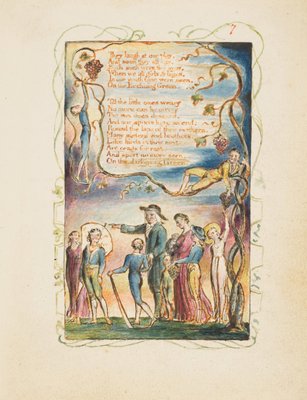 7
They laugh at our play,
And soon they all say,
Such such were the joys,
When we all girls & boys,
In our youth time were seen,
On the Ecchoing Green.
Till the little ones weary
No more can be merry
The sun does descend,
And our sports have an end:
Round the laps of their mothers,
Many sisters and brothers,
Like birds in their nest,
Are ready for rest;
And sport no more seen,
On the darkening Green.